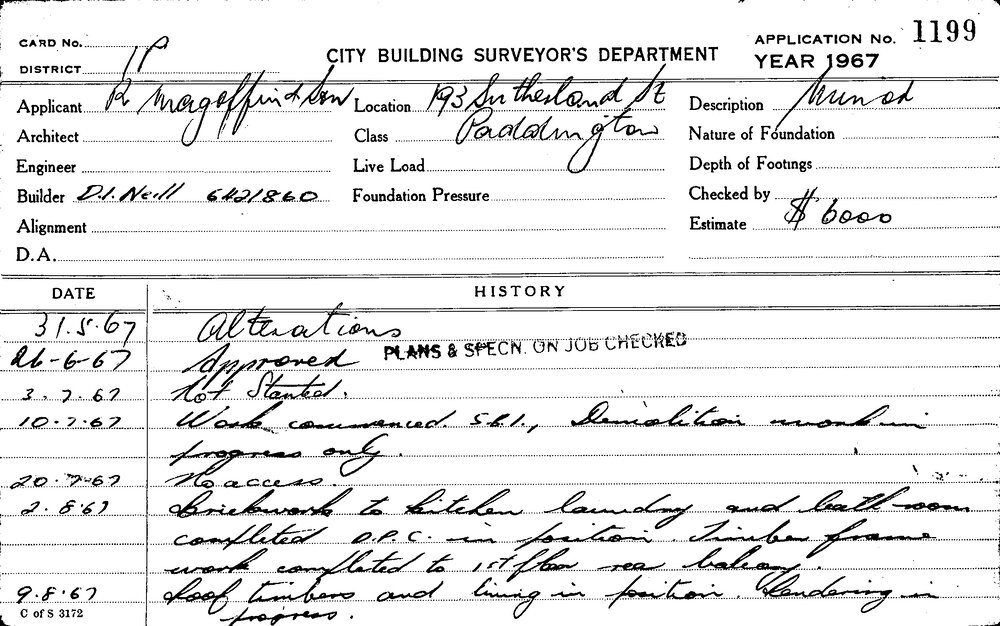 CARD No.
DISTRICT 1P
CITY BUILDING SURVEYOR'S DEPARTMENT
APPLICATION No. 1199
YEAR 1967
Applicant R Magoffin & Son Location 193 Sutherland St Description Minor
Architect Class Paddington Nature of Foundation
Engineer Live Load Depth of Footings
Builder D.I. Neill 6421860 Foundation Pressure Checked by
Alignment Estimate $ 6000
D.A.
DATE HISTORY
31.5.67 Alterations
26-6-67 Approved PLANS & SPECN. ON JOB CHECKED
3.7.67 Not Started.
10.7.67 Work commenced. Demolition work in
progress only.
20-7-67 No access.
2.8.67 Brickwork to kitchen laundry and bath room
completed D.P.C. in position. Timber frame
work completed to 1st floor rear balcony.
9.8.67 Roof timbers and lining in position. Rendering in
progress.
C of S 3172